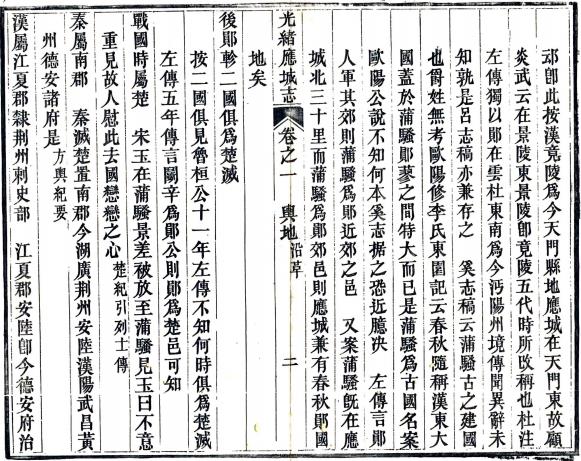 邧卽此按漢竟陵爲今天門縣地應城在天門東故顧
炎武云在景陵東景陵卽竟陵五代時所改稱也杜注
左傳獨以鄖在雲杜東南爲今沔陽州境傳聞異辭未
知孰是呂志稿亦兼存之　奚志稿云蒲騷古之建國
也爵姓無考歐陽修李氏東園記云春秋隨稱漢東大
國蓋於蒲騷鄖蓼之間特大而已是蒲騷爲古國名案
歐陽公說不知何本奚志据之恐近臆决　左傳言鄖
人軍其郊則蒲騷爲鄖近郊之邑　又案蒲騷旣在應
城北三十里而蒲騷爲鄖郊邑則應城兼有春秋鄖國
地矣
光緒應城志　卷之一　輿地　沿革　二
後鄖軫二國俱爲楚滅
按二國俱見魯桓公十一年左傳不知何時俱爲楚滅
左傳五年傳言鬬辛爲鄖公則鄖爲楚邑可知
戰國時屬楚　宋玉在蒲騷景差被放至蒲騷見玉曰不意
重見故人慰此去國戀戀之心　楚紀引列士傳
秦屬南郡　秦滅楚置南郡今湖廣荆州安陸漢陽武昌黃
州德安諸府是　方輿紀要
漢屬江夏郡隸荆州刺史部　江夏郡安陸卽今德安府治